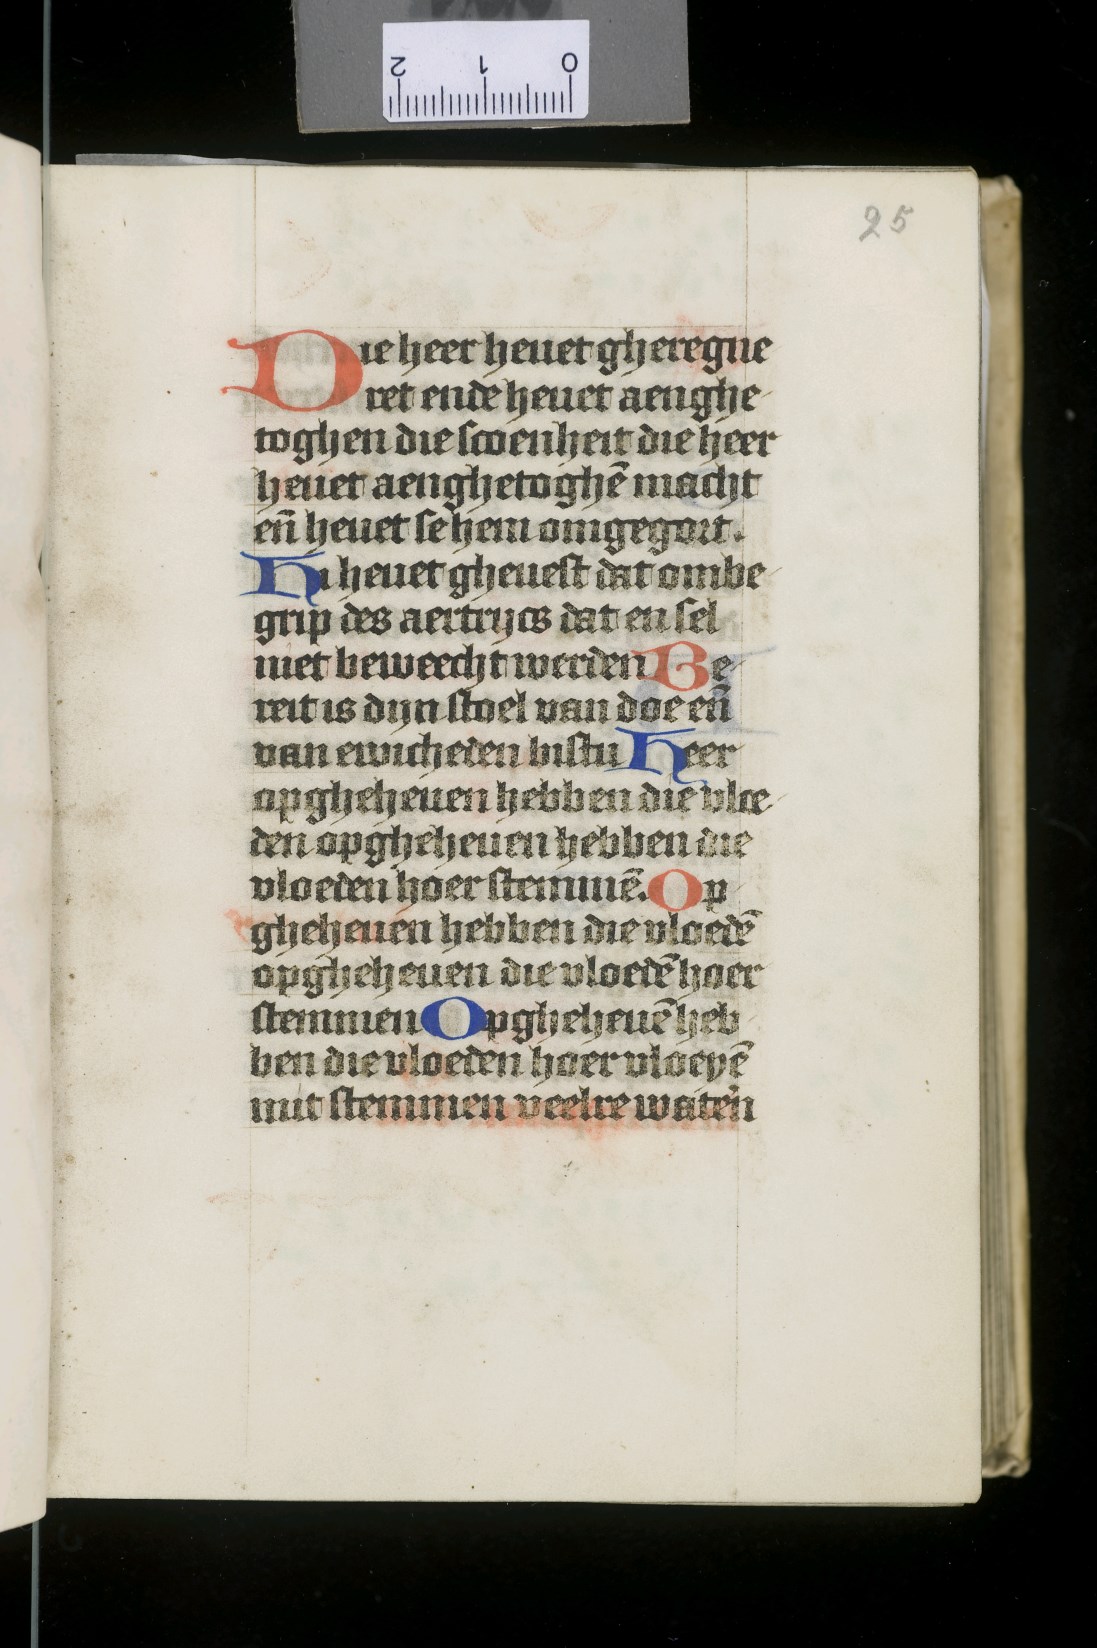 2 1 0
25
Die heer heuet gheregne
ret ende heuet aenghe
toghen die scoenheit die heer
heuet aenghetoghē macht
en̄ heuet se hem omgegort.
Hi heuet gheuest dat ombe
grip des aertrijcs dat en sel
niet beweecht werden Be
reit is dijn stoel van doe en̄
van ewicheden bistu Heer
opgheheuen hebben die vloe
den opgheheuen hebben die
vloeden hoer stemmē. Op
gheheuen hebben die vloedē
opgheheuen die vloedē hoer
stemmen Opgheheuē heb
ben die vloeden hoer vloeyē
mit stemmen veelre watern